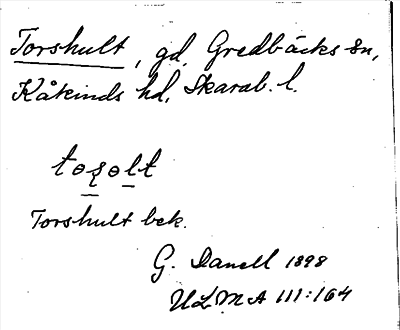 Torshult, gd, Gredbäcks sn,
Kåkinds hd, Skarab. l.
Torshult bek.
G. Danell 1898
ULMA 111:164